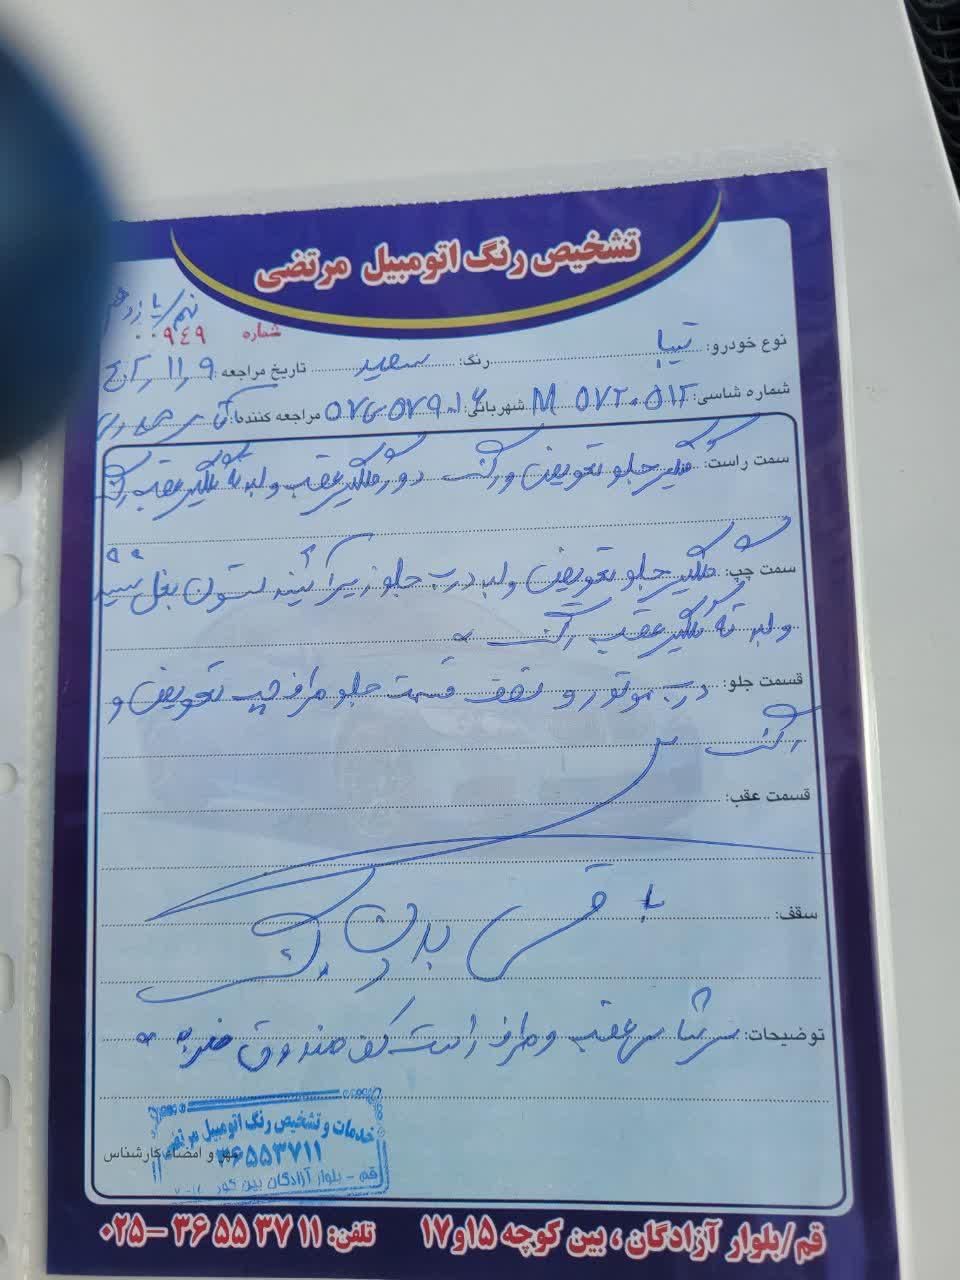 تشخیص رنگ اتومبیل مرتضی
شماره ۰۰۹۴۹
نوع خودرو: تیبا رنگ: سفید تاریخ مراجعه: ۴۰۲٫۱۱٫۹
شماره شاسی: M ۵۷۲۰۵۱۲ شهربانی: مراجعه کننده: آقای
سمت راست: گلگیر جلو تعویض و رنگ دور گلگیر عقب و لبه ته گلگیر عقب رنگ
سمت چپ: گلگیر جلو تعویض و لبه درب جلو زیر آئینه ستون بغل شیشه
و لبه ته گلگیر عقب رنگ
قسمت جلو: درب موتور و نصف قسمت جلو طرف چپ تعویض و
رنگ
قسمت عقب:
سقف: باقی بدون رنگ
توضیحات: سرشاسی عقب و طرف راست کف صندوق ضربه
خدمات و تشخیص رنگ اتومبیل مرتضی
۳۶۵۵۳۷۱۱
قم - بلوار آزادگان بین کوچه
مهر و امضاء کارشناس
قم/بلوار آزادگان، بین کوچه ۱۵و۱۷ تلفن: ۳۶۵۵۳۷۱۱-۰۲۵